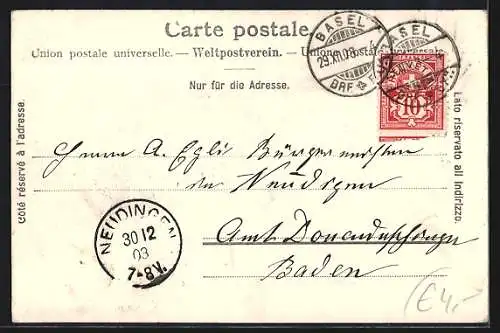 Carte postale.
Union postale universelle. — Weltpostverein. — Unione postale universale.
Nur für die Adresse.
BASEL
29.XII.03.
BRF.
BASEL
HELVETIA
10
Côté réservé à l'adresse.
Lato riservato all'indirizzo.
Herrn A. Egli Bürgermeister
in Neudigen
Amt Donaueschingen
Baden
NEUDINGEN
30 12
03
7-8V.
€4,-